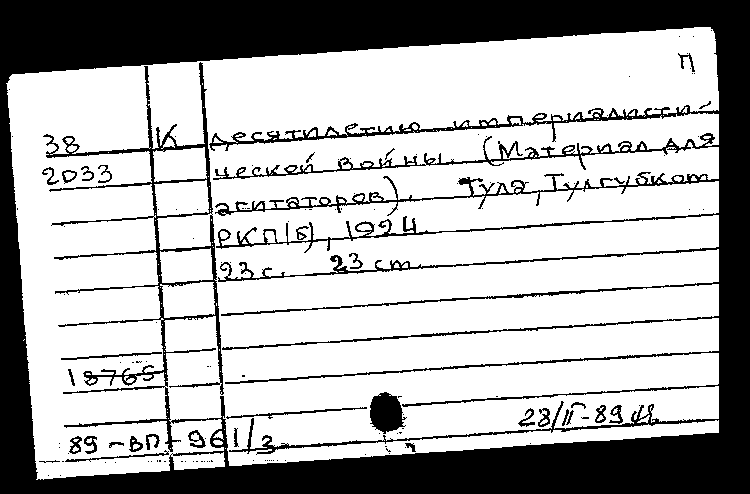 П
38 К десятилетию империалисти-
2D33 ческой войны. (Материал для
агитаторов). Тула, Тулгубком
РКП(б), 1924.
23 с. 23 см.
18765
89-ВП-961/3
28/II-89